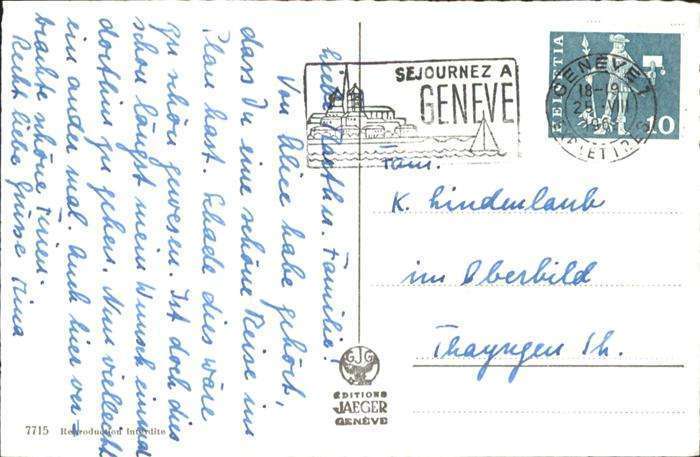 Von Alice habe gehört,
dass Du eine schöne Reise im
Plan hast. Schade dies wäre
zu schön gewesen. Ist doch dies
schon längst mein Wunsch einmal
dorthin zu gehen. Nun vielleicht
ein ander mal. Auch hier ver-
brachte schöne Ferien.
Recht liebe Grüsse Nina
SEJOURNEZ A
GENEVE
GENEVE 1
18-19
VII
HELVETIA
10
Fam.
K. Lindenlaub
im Oberbild
Thayngen Sh.
GJG
EDITIONS
JAEGER
GENÈVE
7715 Reproduction interdite